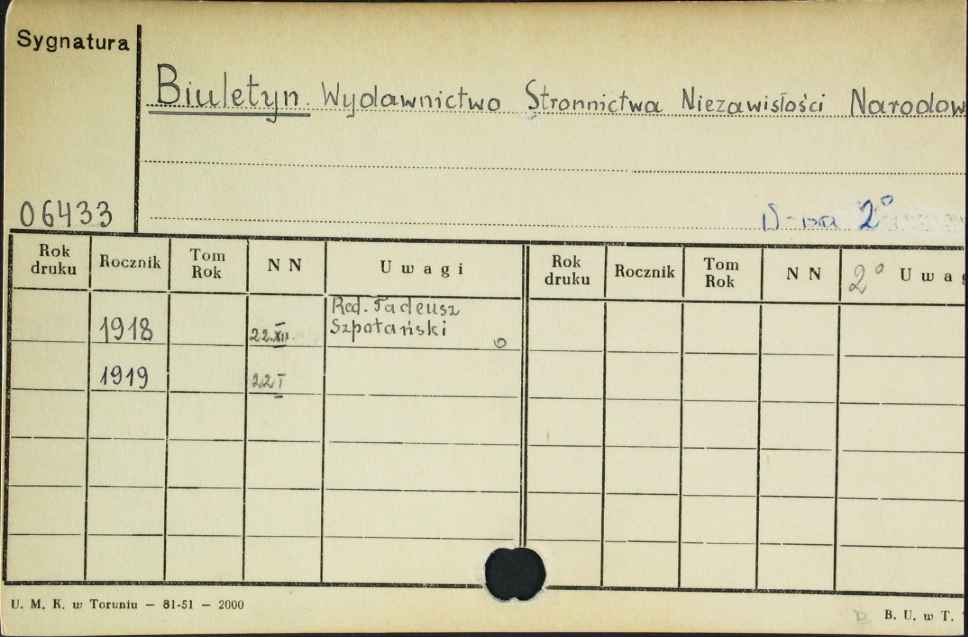 Sygnatura
Biuletyn. Wydawnictwo Stronnictwa Niezawisłości Narodow
06433
2°
Rok druku Rocznik Tom Rok N N Uwagi Rok druku Rocznik Tom Rok N N 2° Uwag
1918 22.XII. Red. Tadeusz
Szpotański
1919 22 I
U. M. K. w Toruniu — 81-51 — 2000
B. U. w T.